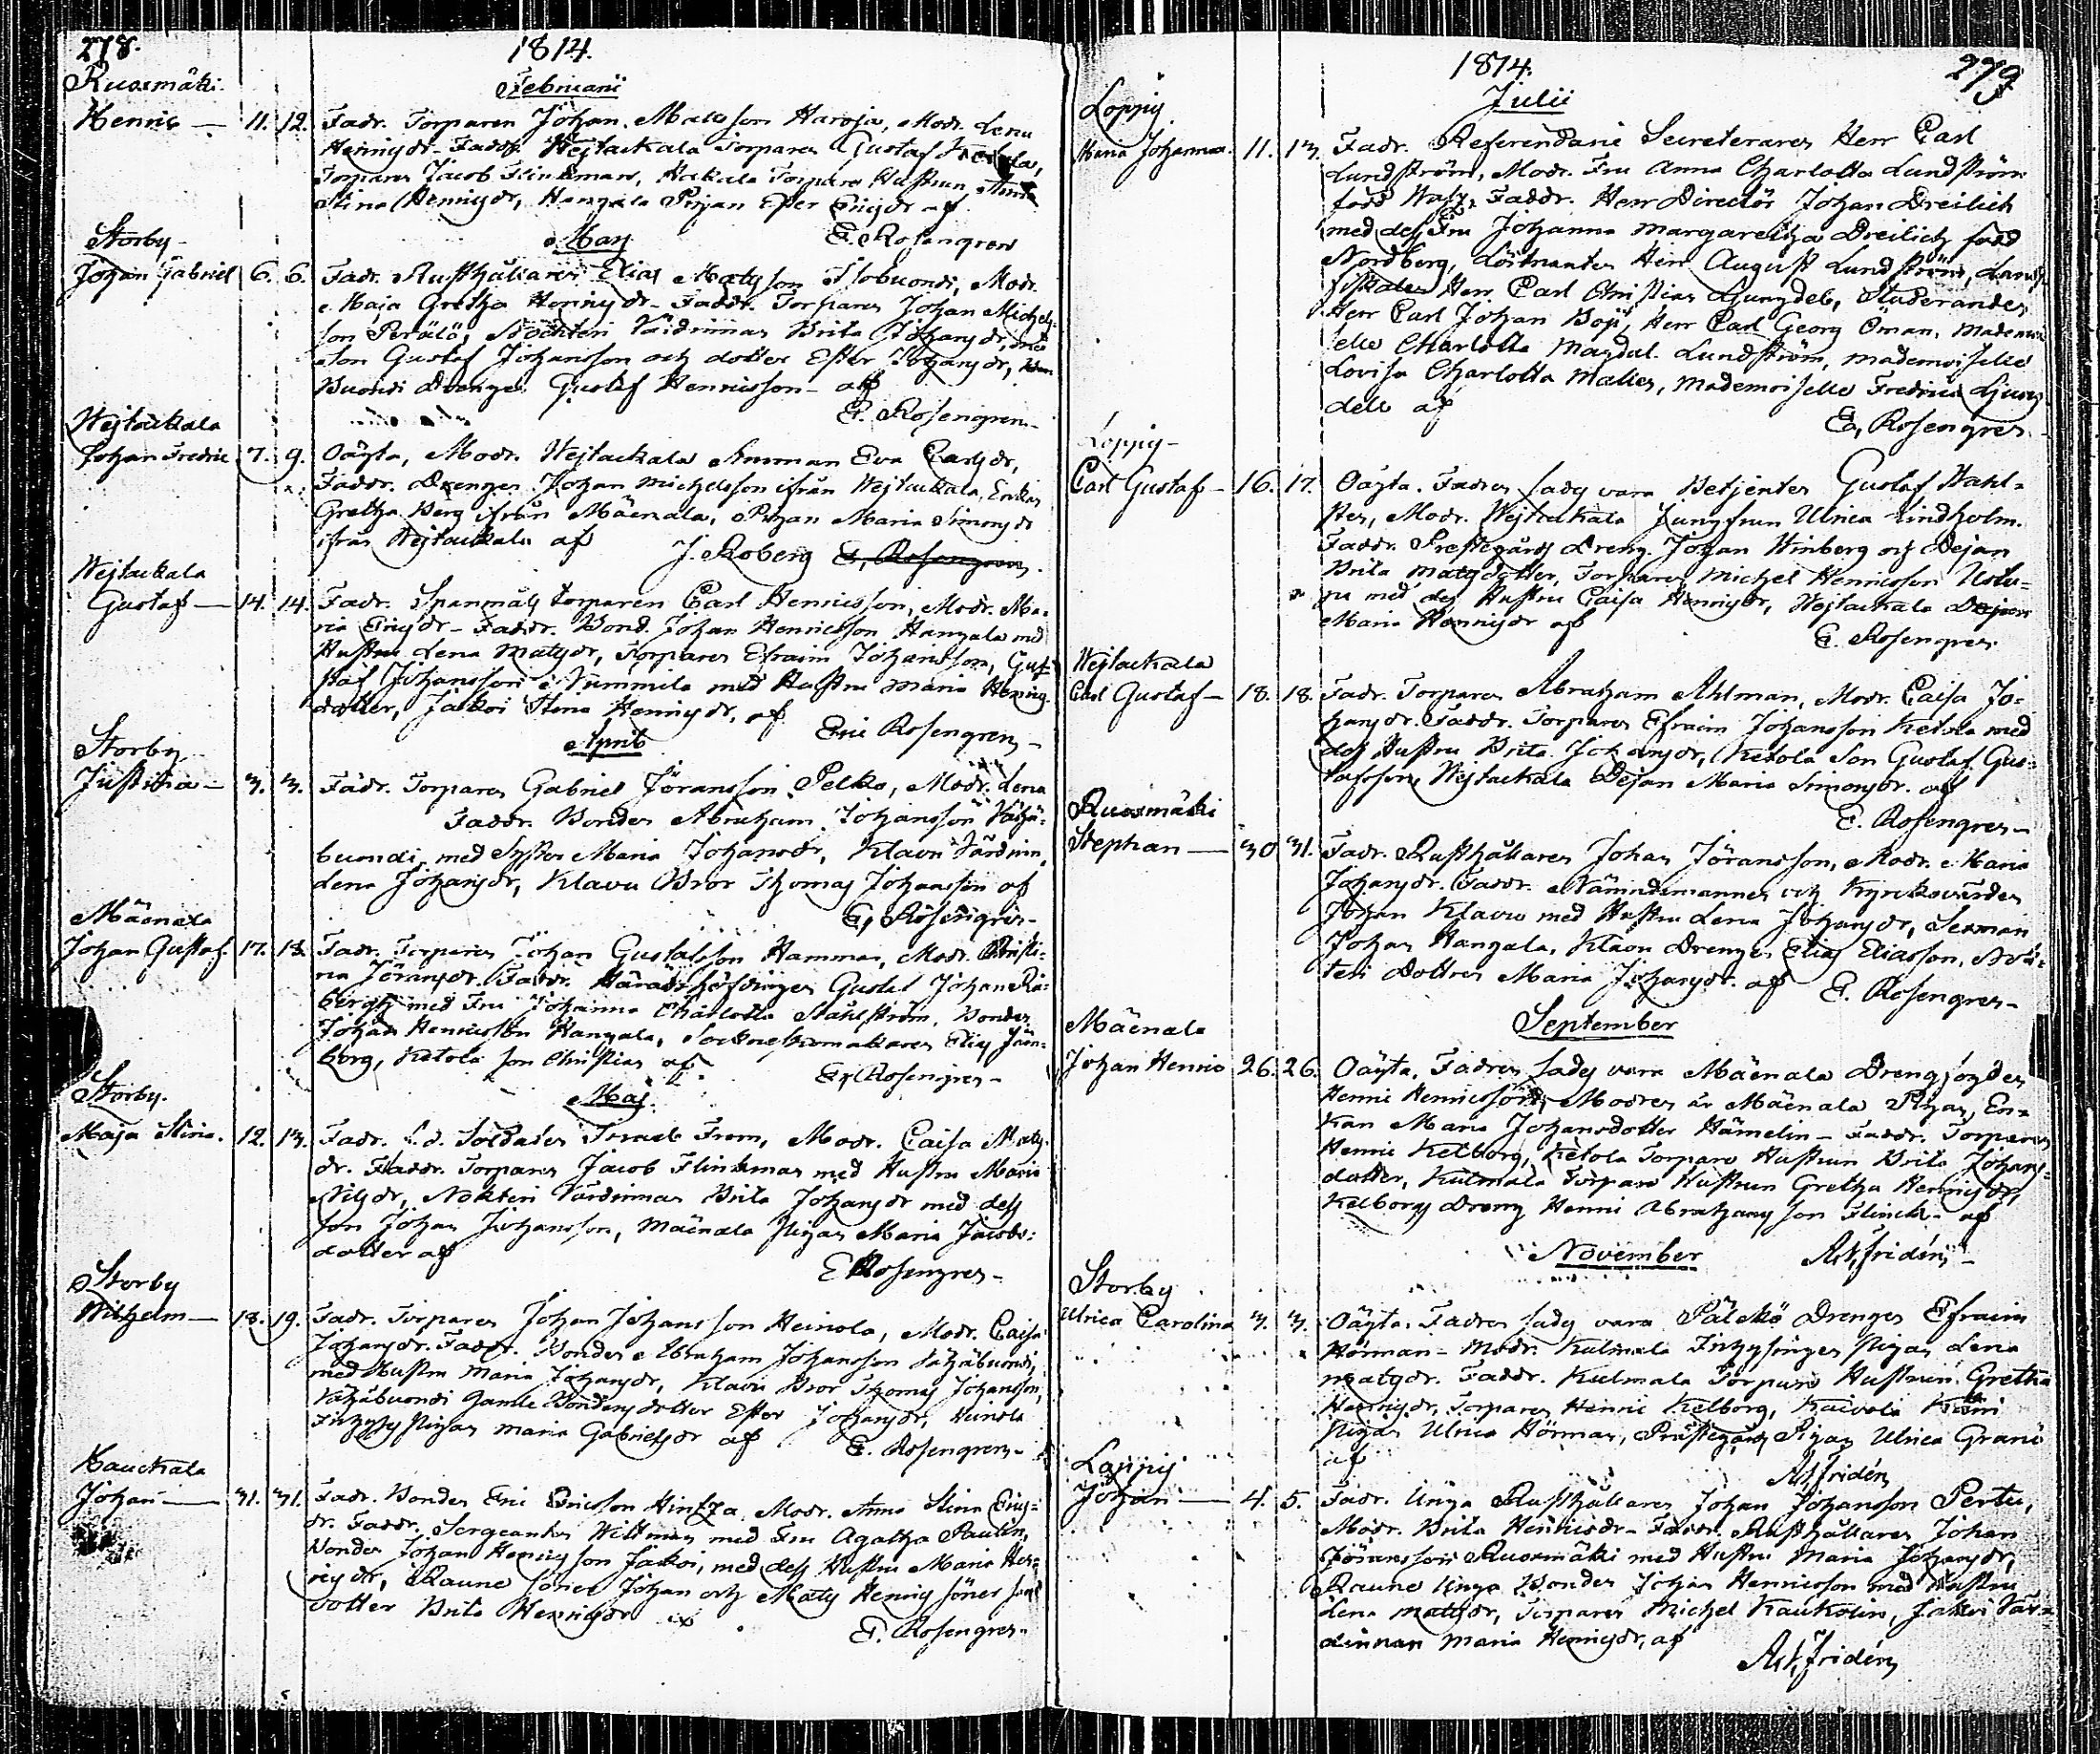 278.
1814.
Ruosmäki.
Februarii
Henric — 11. 12. Fadr. Torparen Johan Matsson Haroja, Modr. Lena
Henrigsdr. Faddr. Wejtackala Torparen Gustaf
Torparen Jacob Flinkman, Torpare Hustrun Anna
Stina Henrigsdr, Hangala Pijan Ester Ericsdr af
E. Rosengren
Storby
Mars
Johan Gabriel 6. 6. Fadr. Rusthållaren Elias Matsson Isobuondi, Modr.
Maja Gretha Henrigsdr. Faddr. Torparen Johan Michels-
son Perälä, Nöckteri Värdinnan Brita Johansdr, med
son Gustaf Johansson och dotter Ester Johansdr,
Buondi Drengen Gustaf Henricsson af
E. Rosengren
Wejtackala
Johan Fredric 7. 9. Oägta, Modr. Wejtackala Amman Eva Carlsdr,
Faddr. Drengen Johan Michelsson ifrån Wejtackala, Enkan
Gretha Berg ifrån Mäenala, Pigan Maria Simonsdr
ifrån Wejtackala af J. Roberg E. Rosengren
Wejtackala
Gustaf — 14. 14. Fadr. Spanmåls torparen Carl Henricsson, Modr. Ma-
ria Ericsdr. Faddr. Bond. Johan Henricsson Hangala med
Hustru Lena Matsdr, Torparen Efraim Johansson, Gus-
staf Johansson i Nummila med Hustru Maria Henrigs-
dotter, Jackoi Stena Henrigsdr, af Eric Rosengren
Storby
April
Justina — 3. 3. Fadr. Torparen Gabriel Jöransson Pelko, Modr. Lena
Faddr. Bonden Abraham Johansson Vähä-
buondi med Syster Maria Johansdr, Klavu Värdinn,
Lena Johansdr, Klavu Bror Thomas Johansson af
E. Rosengren
Mäenala
Johan Gustaf. 17. 18. Fadr. Torparen Johan Gustafsson Hammar, Modr. Christi-
na Jöransdr. Faddr. Häradshöfdingen Gustaf Johan Ra-
bergh med Fru Johanna Charlotta Stählström, Bonden
Johan Henricsson Hangala, Sockneskomakaren Elias Järn-
borg, Ketola son Christian af
E. Rosengren
Storby.
Maj.
Maja Stina. 12. 13. Fadr. f.d. Soldaten Israel From, Modr. Caisa Mats-
dr. Faddr. Torparen Jacob Flinkman med Hustru Maria
Nilsdr, Nökteri Värdinnan Brita Johansdr med dess
son Johan Johansson, Mäenala Pigan Maria Jacobs-
dotter af
E Rosengren
Storby
Wilhelm — 18. 19. Fadr. Torparen Johan Johansson Heinola, Modr. Caisa
Johansdr. Faddr. Bonden Abraham Johansson Vähäbuondi
med Hustru Maria Johansdr, Klavu Bror Thomas Johansson,
Vähäbuondi Gamle Bondens dotter Ester Johansdr, Heinola
Inhyses Pigan Maria Gabrielsdr af E. Rosengren
Hauckala
Johan — 31. 31. Fadr. Bonden Eric Ericsson Hintza, Modr. Anna Stina Erics-
dr. Faddr. Sergeanten Wittman med Fru Agatha Paulin,
Bonden Johan Henrigsson Jackoi, med dess Hustru Maria Hen-
rigsdr, Raune söner Johan och Mats Henrigs söner samt
dotter Brita Henrigsdr af
E. Rosengren
1814.
279
Loppis
Julii
Johanna. 11. 13. Fadr. Referendarie Secreteraren Herr Carl
Lundström, Modr. Fru Anna Charlotta Lundström
född Faddr. Herr Director Johan Dreilich
med dess Fru Johanna Margaretha Dreilich född
Nordberg, Löitnanten Herr August Lundström, Lands-
fiskalen Herr Carl Christian Ljungdel, Studeranden
Herr Carl Johan Boje, Herr Carl Georg Öman, Mademoi
selle Charlotta Magdal. Lundström, Mademoiselle
Lovisa Charlotta Maller, Mademoiselle Fredrica Ljung
dell af
E. Rosengren
Loppis
Carl Gustaf — 16. 17. Oägta. Fadren sades vara Betjenten Gustaf Wahl-
sten, Modr. Wejtackala Jungfrun Ulrica Lindholm.
Faddr. Prestegårds Dreng. Johan Winberg och Pejan
Brita Matsdotter, Torparen Michel Henricsson Usku-
pu med dess Hustru Caisa Henrigsdr, Wejtackala
Maria Henrigsdr af
E. Rosengren
Wejtackala
Carl Gustaf — 18. 18. Fadr. Torparen Abraham Ahlman, Modr. Caisa Jo-
hansdr. Faddr. Torparen Efraim Johansson Ketola med
dess Hustru Brita Johansdr, Ketola Son Gustaf Gus-
tafsson, Wejtackala Pejan Maria Simonsdr. af
E. Rosengren
Ruosmäki
Stephan — 30 31. Fadr. Rusthållaren Johan Jöransson, Modr. Maria
Johansdr. Faddr. Nämndemannen och Kyrckovärden
Johan Klavu med Hustru Lena Johansdr, Sexman
Johan Hangala, Klavu Drengen Elias Eliasson,
teri Dottren Maria Johansdr. af E. Rosengren
September
Mäenala
Johan Henric 26. 26. Oägta. Fadren sades vara Mäenala
Henric Henricsson, Modren är Mäenala Pigan, En-
kan Maria Johansdotter Hämelin — Faddr. Torparen
Henric Kelborg, Ketola Torpare Hustrun Brita Johans-
dotter, Kulmala Torpare Hustrun Gretha Henrigsdr,
Kelborgs Dreng Henric Abrahams son Flinck af
A.N. Fridén
November
Storby
Ulrica Carolina 3. 3. Oägta. Fadren sades vara Pälckö Drengen Efraim
Hörman — Modr. Kulmala Inhysinges Pigan Lena
Matsdr. Faddr. Kulmala Torpare Hustrun Gretha
Henrigsdr, Torparen Henric Kelborg, Kaivola
Pigan Ulrica Hörman, Prästegårds Pigan Ulrica Gran
af
A.N. Fridén
Loppis
Johan — 4. 5. Fadr. Unga Rusthållaren Johan Johansson Pertu,
Modr. Brita Henricsdr — Faddr. Rusthållaren Johan
Jöransson Ruosmäki med Hustru Maria Johansdr,
Raune Unga Bonden Johan Henricsson med Hustru
Lena Matsdr, Torparen Michel Kaukolin, Jakoi Vär-
dinnan Maria Henrigsdr, af
A.N. Fridén